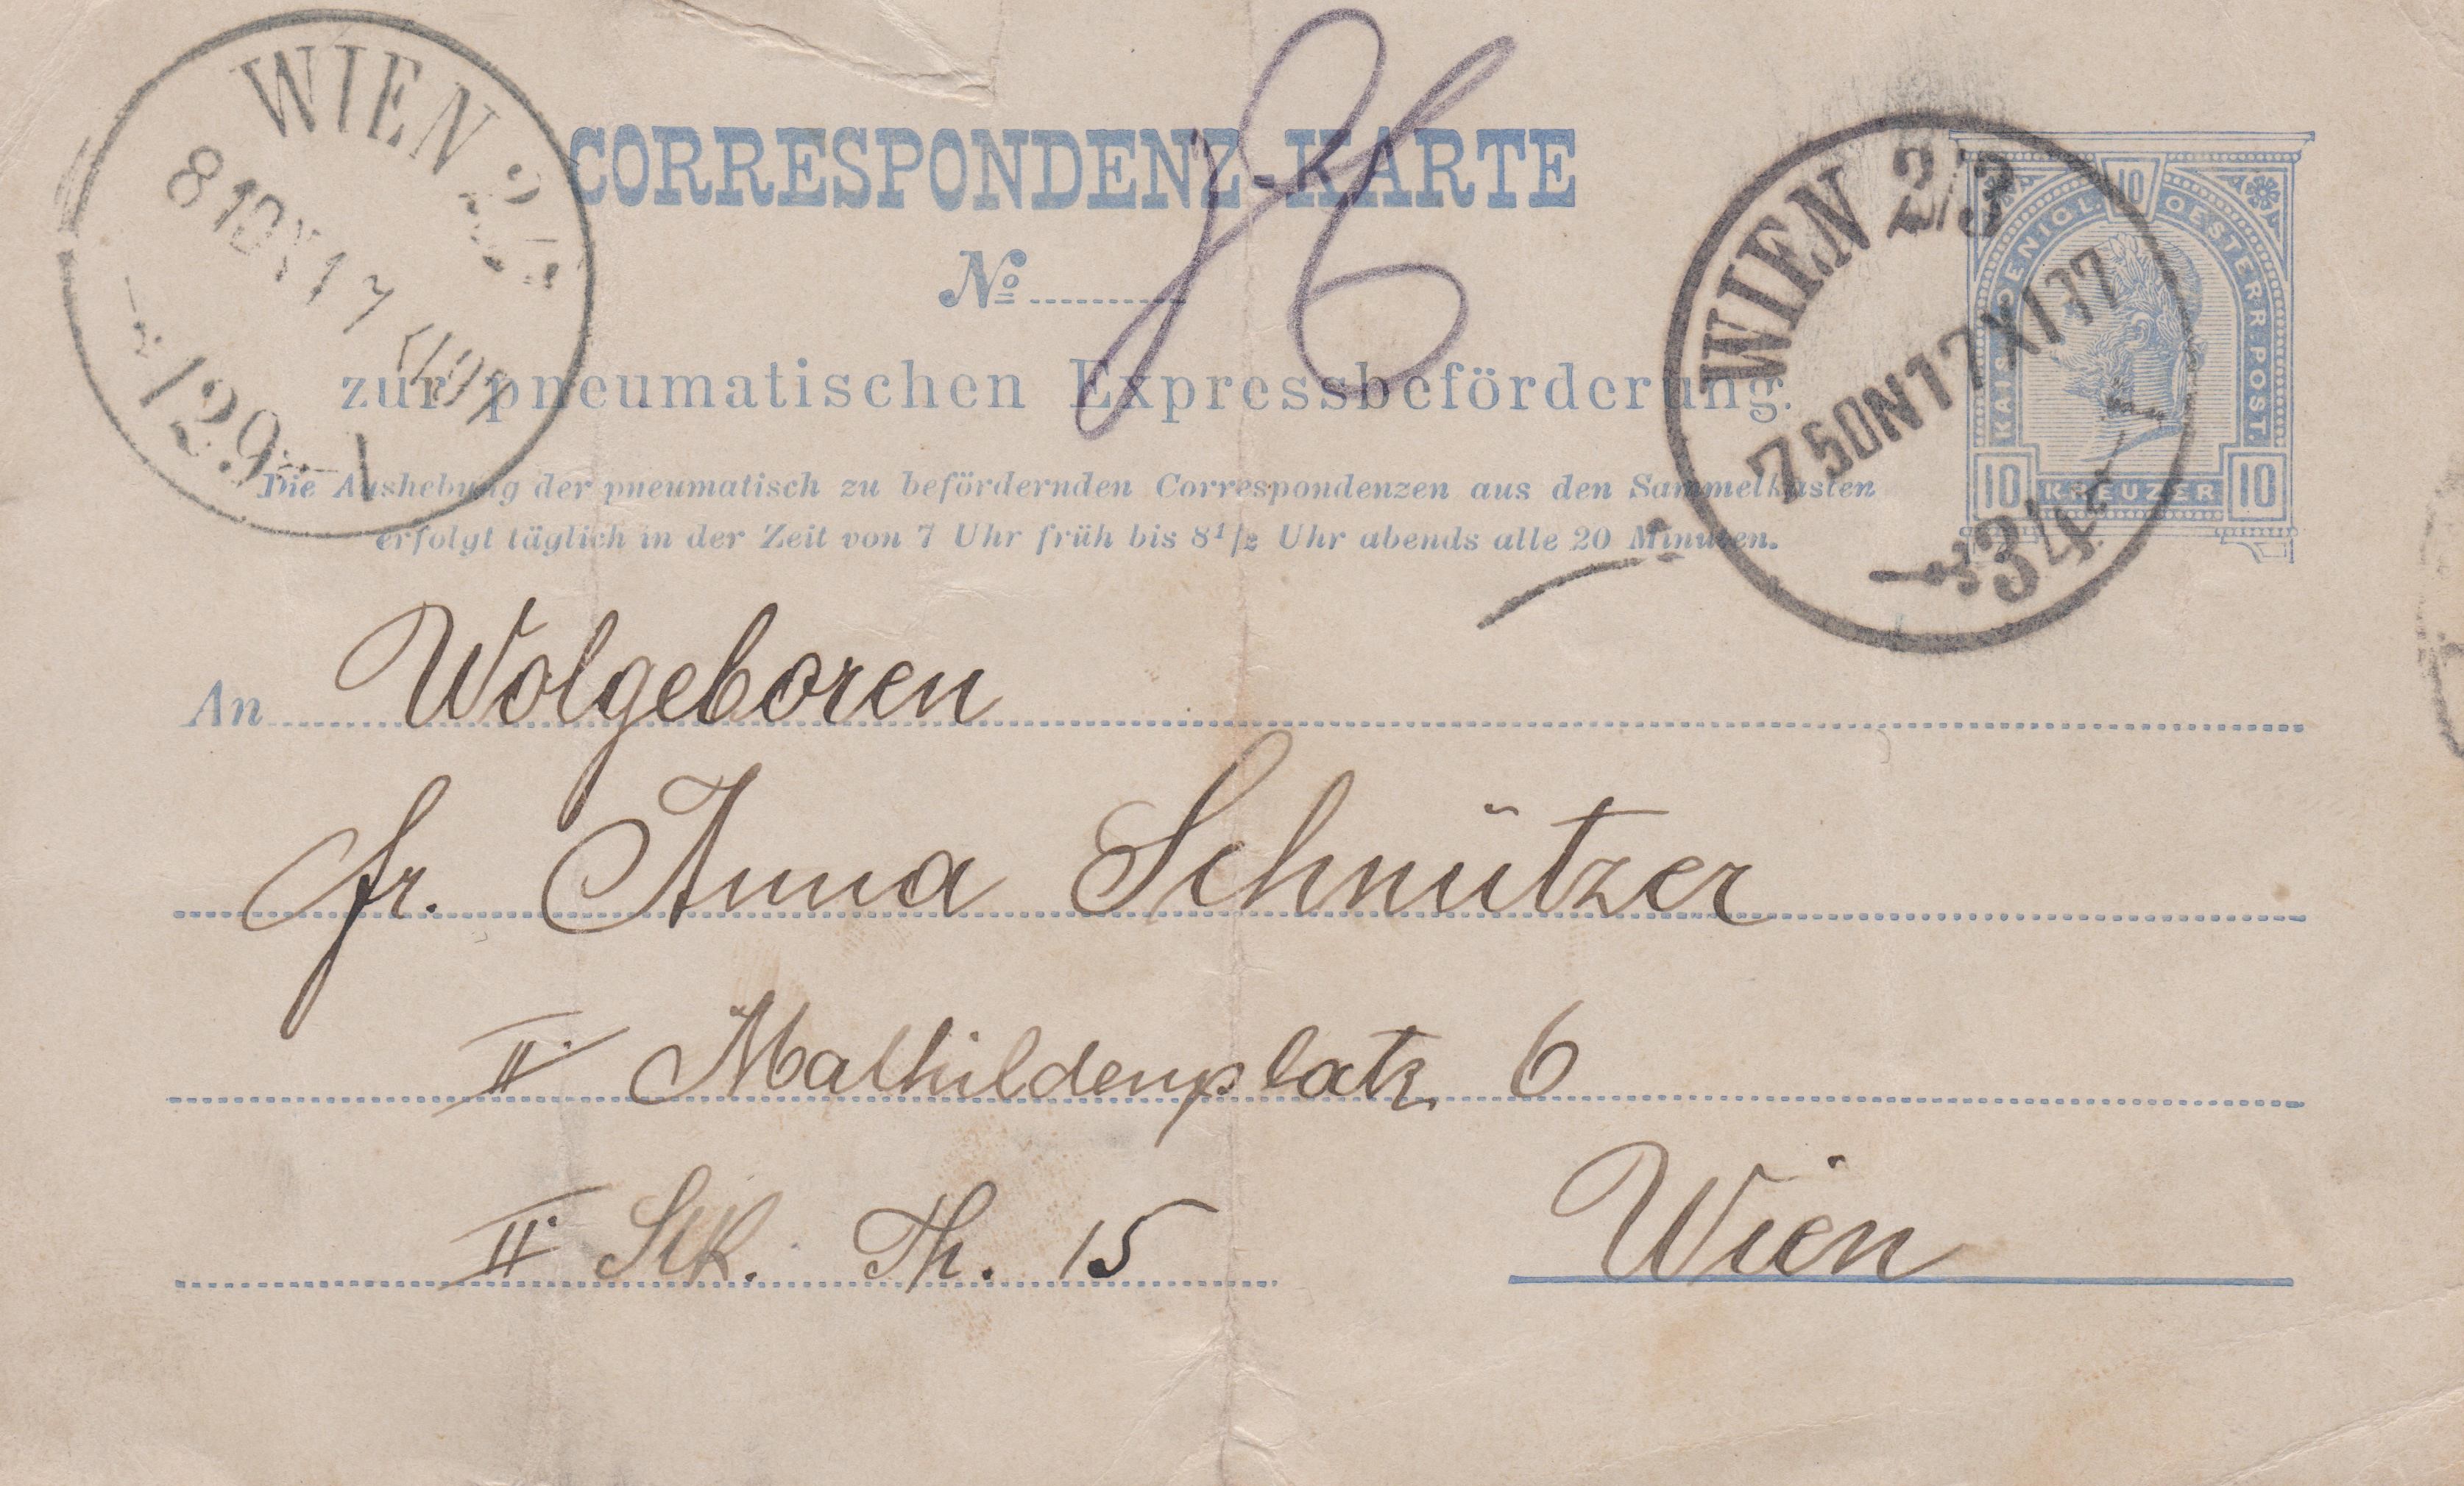 WIEN 2/3
7 50N 17 XI 77
34
KAIS. KOENIGL. OESTERR. POST.
10
10 KREUZER 10
WIEN 2/
8 10N 17 XI
129
CORRESPONDENZ-KARTE
No 86
zur pneumatischen Expressbeförderung.
Die Aushebung der pneumatisch zu befördernden Correspondenzen aus den Sammelkästen
erfolgt täglich in der Zeit von 7 Uhr früh bis 8 1/2 Uhr abends alle 20 Minuten.
An Wolgeboren
fr. Anna Schnützer
II. Mathildenplatz 6
II. Stk. Th. 15
Wien